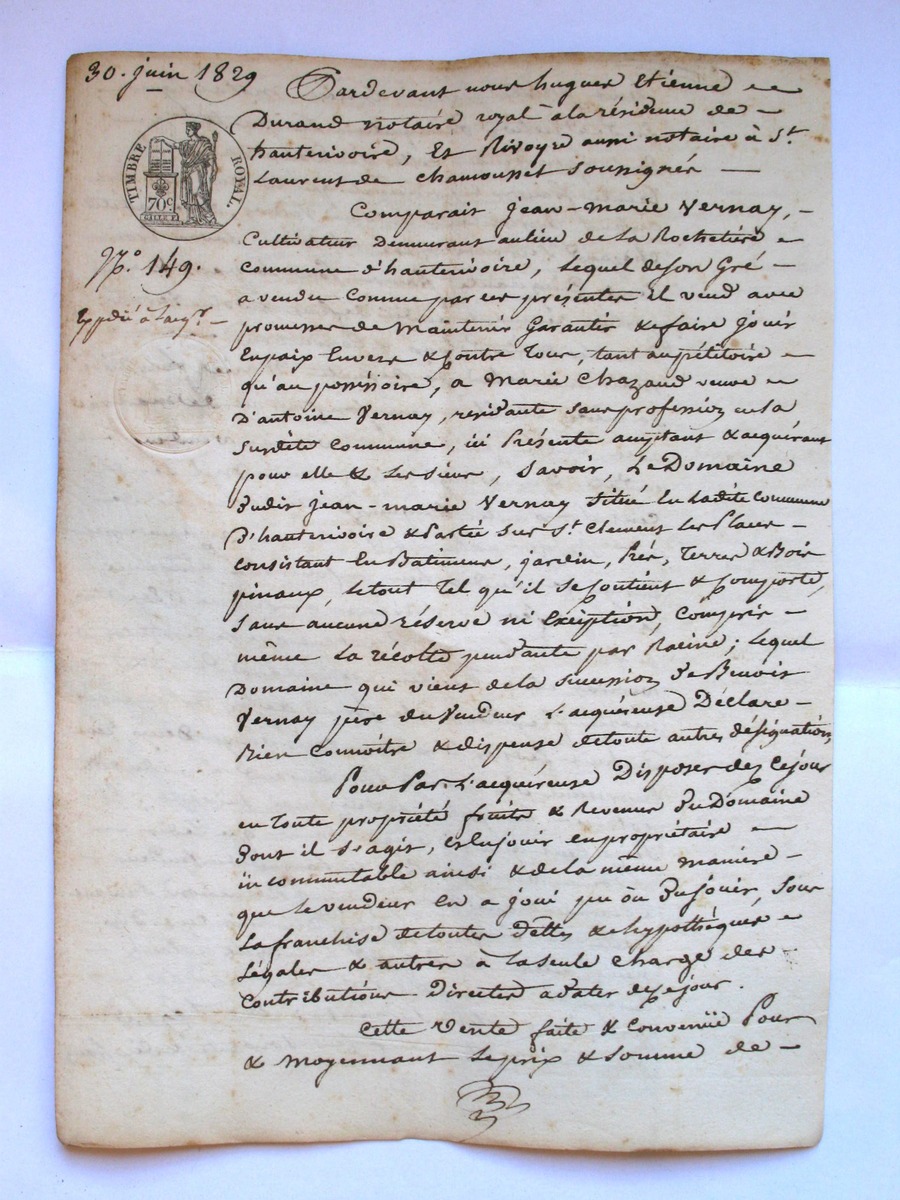 30. juin 1829
TIMBRE ROYAL.
70c
N.o 149.
Expédié à l'acqr. —
Pardevant nous hugues Etienne
Durand notaire royal à la résidence de —
hauterivoire, Et Rivoyre aussi notaire à St.
Laurent de Chamousset Soussignés —
Comparait Jean-Marie Vernay, —
Cultivateur demeurant au lieu de La Rochetière
commune d'hauterivoire, Lequel de son Gré —
a vendu Comme par ces présentes Il vend avec
promesses de Maintenir Garantir & faire jouir
En paix Envers & Contre Tous, tant au pétitoire —
qu'au possessoire, a Marie Chazaud veuve
D'antoine Vernay, résidante sans profession en la
Susdite commune, ici Présente acceptant & acquérant
pour elle & Les Siens, Savoir, Le Domaine
Dudit Jean-marie Vernay Situé En Ladite Commune
D'hauterivoire & Partie Sur St. Clement Les Places —
Consistant En Batimens, Jardin, Prés, Terres & Bois
pinaux, Le tout Tel qu'il Se Contient & Comporte,
Sans aucune réserve ni Exception, Compris —
même La récolte pendante par Racine; Lequel
Domaine qui vient de la succession De Benoit
Vernay père du Vendeur L'acquéreuse Déclare —
Bien Connoitre & dispense de toute autres désignations,
Pour Par L'acquéreuse Disposer dez Ce jour
en toute propriété fruits & Revenus Du Domaine
Dont il S'agit, & En jouir en propriétaire —
incommutable ainsi & de la même manière —
que le vendeur En a joui pu ou Du jouir, Sous
La franchise de toutes Dettes & hypothéques
Légales & autres à La Seule Charge des —
Contributions Directes a Dater de Ce jour.
Cette Vente faite & Convenüe Pour
& Moyennant Le prix & Somme de —